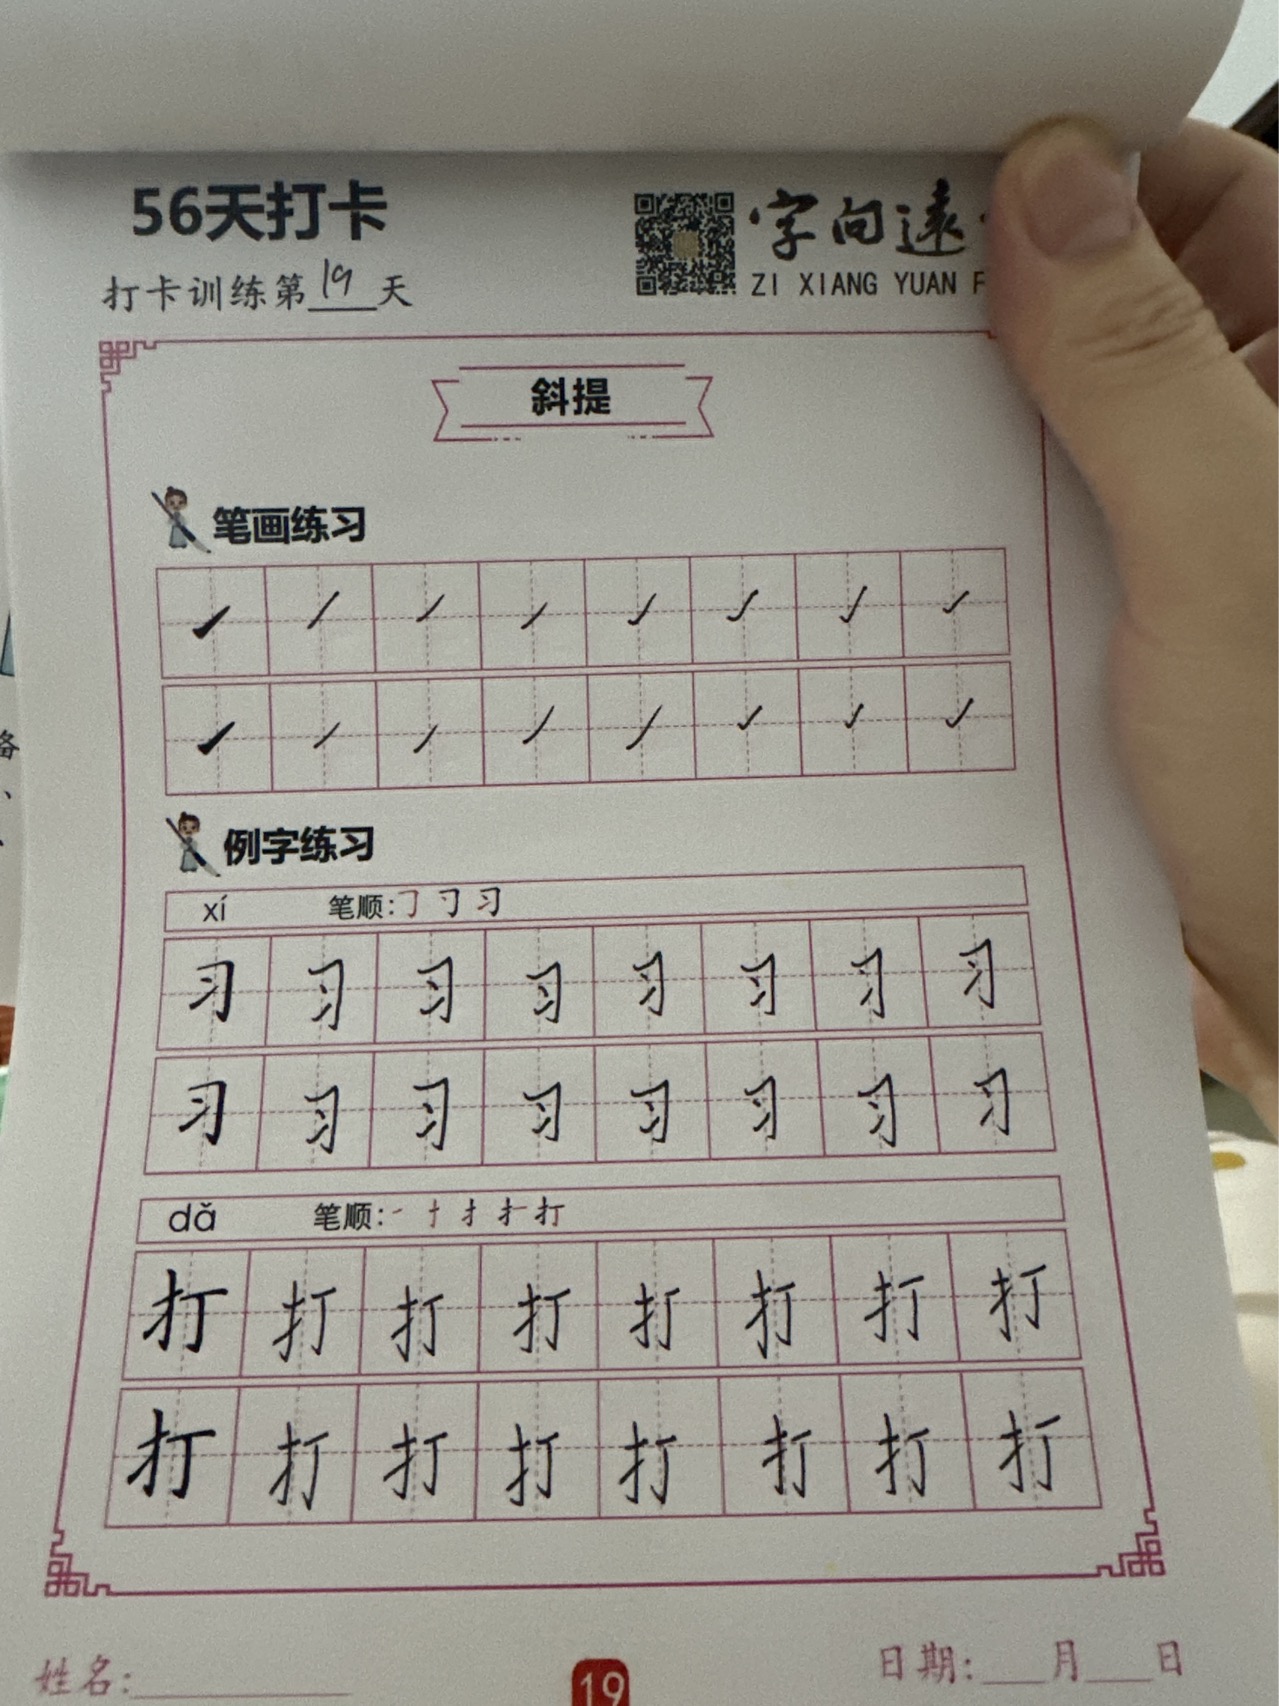 56天打卡
打卡训练第19天
字向远
ZI XIANG YUAN
斜提
笔画练习
例字练习
xí 笔顺:
习 习 习 习 习 习 习 习
习 习 习 习 习 习 习 习
dǎ 笔顺:
打 打 打 打 打 打 打 打
打 打 打 打 打 打 打 打
姓名:
19
日期: 月 日